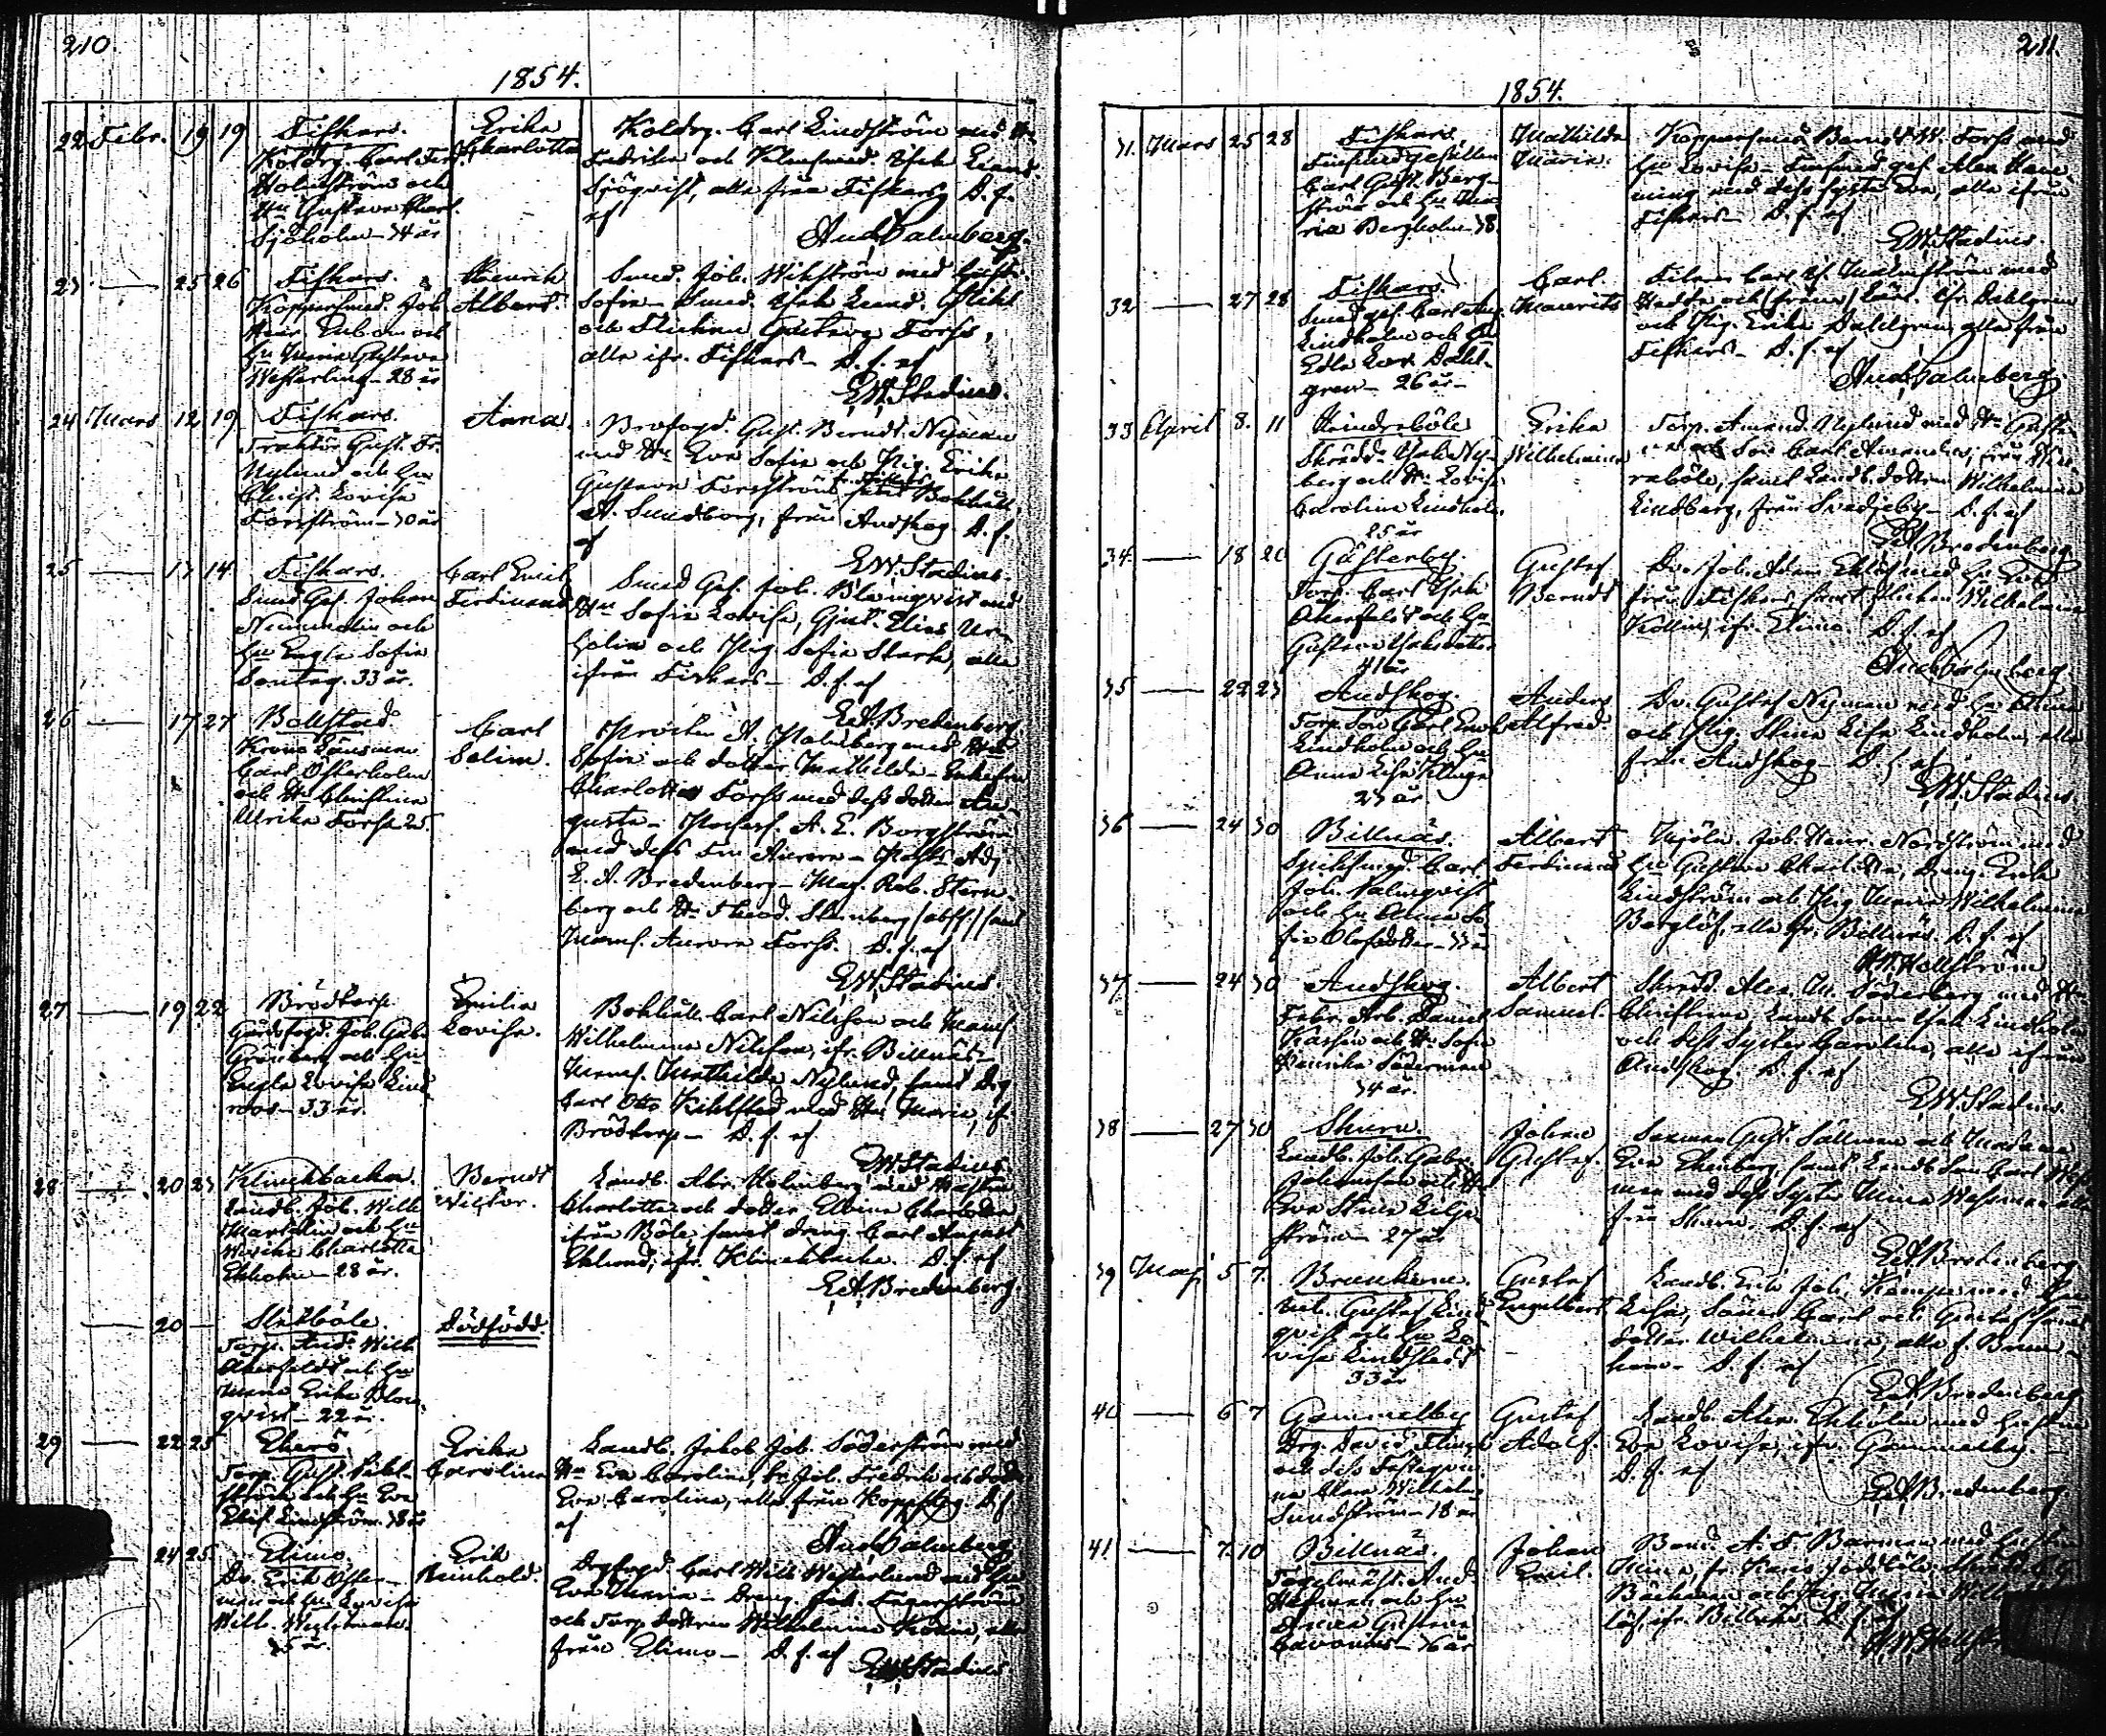 210.
1854.
22 Febr. 19 19 Fiskars.
Koldrg. Carl Fer.
Holmström och
Hu Gustava Charl.
Sjöholm - 34 år
Erika
Charlotta
Koldrg. Carl Lindström med Hu
Fredrika och
Sjöqvist, alla från Fiskars D. f.
af
And Palmberg.
23 — 25 26 Fiskars.
Koppersmed. Joh.
Henr. och
Hu Maria Gustava
Westerling - 28 år
Henrik
Albert.
Smed. Joh. Wikström med Hustr.
Sofia - Smed. Isak
och Flickan Gustava Forss,
alla ifr. Fiskars - D. f. af
E.W. Stadius.
24 Mars 12 19 Fiskars.
Traktör Gust. Fr.
Nylund och Hu
Christ. Lovisa
Forsström - 30 år
Anna.
Brofogd. Gust. Berndt Nyman
med Hu Eva Sofia och Pig. Erika
Gustava Forsström fr. Fiskars samt Bokhåll.
A. Sundborg, från Antskog. D. f.
af
E.W. Stadius.
25 — 13 14 Fiskars.
Smed Ges. Johan
Nummelin och
Hu Engla Sofia
Sontag. 33 år.
Carl Emil
Ferdinand
Smed Ges. Joh. Blomqvist med
Hu Sofia Lovisa, Gjut. Elias
och Pig. Sofia Stark, alla
ifrån Fiskars - D. f. af
Ed. Bredenberg.
26 — 17 27 Bollstad
Krono Länsman
Carl Österholm
och Hu Christina
Ulrika Forss 25.
Carl
Selim.
Prosten A. Palmberg med Hu
Sofia och dotter Mathilda - Enkefru
Charlotta Forss med dess dotter Au-
gusta - A. E. Borgström
med dess Fru Aurora - Adj.
E. A. Bredenberg - Mag. Rob. Sten-
berg och Hu Theod. Stenberg (abs.) samt
Mamsell Aurora Forss. D. f. af
E.W. Stadius.
27 — 19 22 Brödtorp.
Gårdsfogd. Joh. Gabr.
Grönberg och Hu
Engla Lovisa Lind-
roos - 33 år.
Emilia
Lovisa.
Bokhåll. Carl Nilsson och Mams.
Wilhelmina Nilsson, ifr. Billnäs -
Mams. Mathilda Nylund, samt Drg
Carl Otto Kihlstedt med Hu Maria, if.
Brödtorp - D. f. af
E.W. Stadius.
28 — 20 23 Klinckbacka.
Landb. Joh. Wilh.
Martelin och Hu
Ulrika Charlotta
Ekholm - 28 år.
Berndt
Victor.
Landb. Abr. Holmberg med Hustru
Charlotta och dotter Elvira Charlotta
ifrån Böle, samt dreng Carl August
Eklund, ifr. Klinckbacka. D. f. af
Ed. Bredenberg.
— 20 — Slätböle.
Torp. And. Wilh.
Åkerfeldt och Hu
Maria Erika Blom-
qvist - 22 år.
Dödfödd
29 — 22 25 Ekerö
Torp. Gust.
ström och Hu Eva
Elis. Lindström. 38 år
Erika
Carolina
Landb. Jakob Joh. Söderström med
Hu Eva Carolina, Joh. Fredrik och dotter
Eva Carolina, alla från Koppskog. D. f.
af
And Palmberg
24 25 Elimo
Dr. Erik Öster-
man och Hu Lovisa
Wilh. Westerman.
35 år.
Erik
Reinhold.
Drgfogd. Carl Wilh. Westerlund med Hu
Eva Maria - Dreng Joh. Fagerström
och Torp. dottern Wilhelmina alla
från Elimo - D. f. af
E.W. Stadius.
211.
1854.
31. Mars 25 28 Fiskars
Finsmedgesällen
Carl Gust. Berg-
ström och Hu Ma-
ria Bergholm - 38
Mathilda
Maria.
Koppersmed Berndt W. Forss med
Hu Lovisa - Finsmed ges. Alex. Hen-
ning med dess syster Eva, alla ifrån
Fiskars - D. f. af
E.W. Stadius.
32 — 27 28 Fiskars
Smed ges. Carl Aug.
Lindholm och Hu
Edla Lov. Dahl-
gren - 26 år -
Carl.
Mauritz
Filare Carl Malmström med
Hedda och
och Pig. Erika Dahlgren alla från
Fiskars - D. f. af
And Palmberg
33 April 8. 11 Hindrsböle
Skrädd. Isak Ny-
berg och Hu Lovisa
Carolina Lindholm.
25 år
Erika
Wilhelmina
Torp. Amand. Nylund med Hu Gusta-
va och Son Carl Amandus, från
samt Landb. dottern Wilhelmina
Lindberg, från Svedjeby - D. f. af
Ed. Bredenberg.
34. — 18 20 Gästerby.
Torp. Carl Isak
Åkerfelt och Hu
Gustava Isaksdotter
41 år
Gustaf
Berndt
Dr. Joh. Adam Eklöf med Hu
från Fiskars samt flickan Wilhelmina
Kollin, ifr. Elimo. D. f. af
And Palmberg
35 — 22 23 Antskog.
Torp. Son Carl Erik
Lindholm och Hu
Anna Lisa Kluga
23 år.
Anders
Alfred.
Dr. Gustaf Nyman med Hu Anna
och Pig. Stina Lisa Lindholm, alla
från Antskog - D. f. af
E.W. Stadius.
36 — 24 30 Billnäs.
Spiksmed. Carl
Joh. Palmqvist
och Hu Anna So-
fia Olofsdotter - 33 år
Albert
Ferdinand
Mjöln. Joh. Henr. Nordström med
Hu Gustava Charlotta, Dreng. Erik
Lindström och Pig Maria Wilhelmina
Berglöf, alla fr. Billnäs. D. f. af
A.W. Hellström
37 — 24 30 Antskog.
Fabr. Arb. Samuel
Karsten och Hu Sofia
Henrika Söderman
34 år.
Albert
Samuel.
Skrädd. Alex. M. Söderberg med Hu
Christina, Landb. Sonen Isak Lindholm
och dess Syster Carolina, alla ifrån
Antskog. D. f. af
E.W. Stadius.
38 — 27 30 Skuru
Landb. Joh. Gabr.
Johansson och Hu
Eva Stina Lilje-
ström - 27 år
Johan
Gustaf.
Sexman Gust. Sällman och Madame
Eva Ekenberg, samt Landb. Son Carl Wess-
man med dess Syster Mina Wessman alla
från Skuru. D. f. af
Ed. Bredenberg
39 Maj 5 7. Brunkom.
Gustaf Lind-
qvist och Hu Lo-
visa Lindstedt
33 år
Gustaf
Engelbert
Landb. Erik Joh. Kamp med Hu
Lisa, Sönen Carl och Gustaf samt
dotter Wilhelmina, alla f. Brun-
kom. D. f. af
Ed. Bredenberg
40 — 6 7 Gammelby
Drg. David Flinck
och dess Fästeqvin-
na Clara Wilhelm.
Sundström - 18 år
Gustaf
Adolf.
Landb. Alex. Ekholm med Hustru
Eva Lovisa, ifr. Gammelby. -
D. f. af
Ed. Bredenberg
41 — 7. 10 Billnäs.
And.
Hofman och Hu
Gustava
36 år
Johan
Emil.
Bond. A. F. Barman med Hustru
Mina, fr. Karis
Bäckman och Pig. Maria Wilh.
löf, ifr. Billnäs. D. f. af
A.W. Hellst